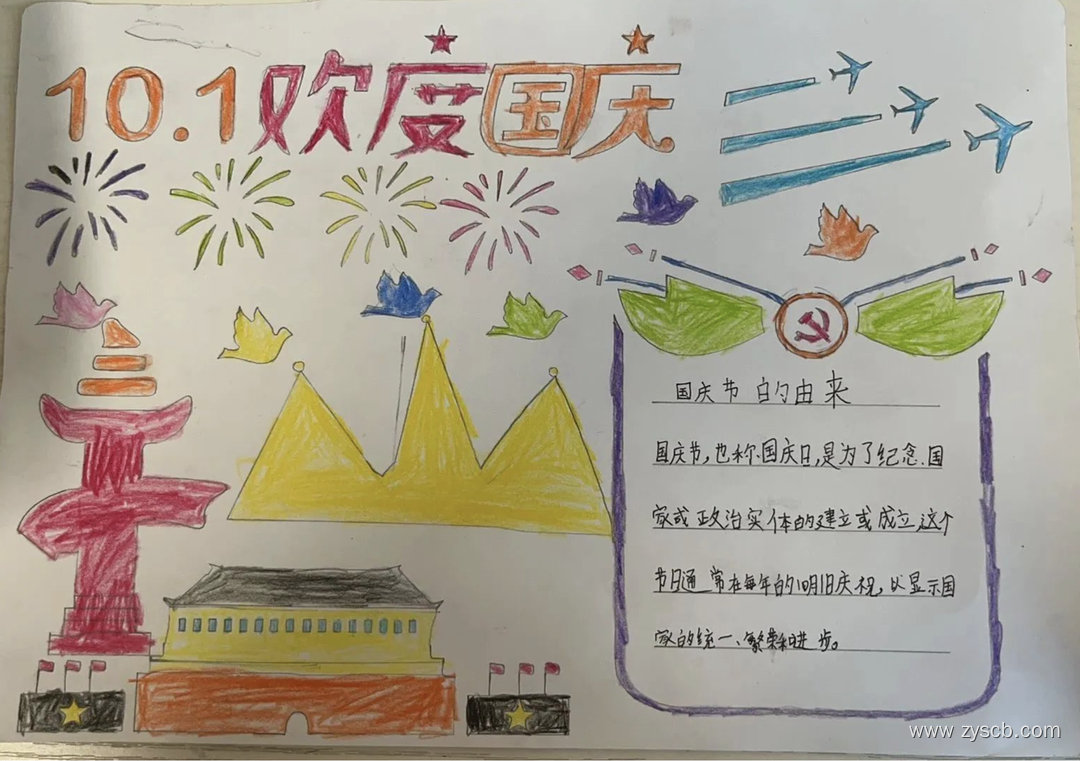 10.1欢度国庆
国庆节的由来
国庆节,也称国庆日,是为了纪念国
家或政治实体的建立或成立,这个
节日通常在每年的10月1日庆祝,以显示国
家的统一、繁荣和进步。
www.zyscb.com